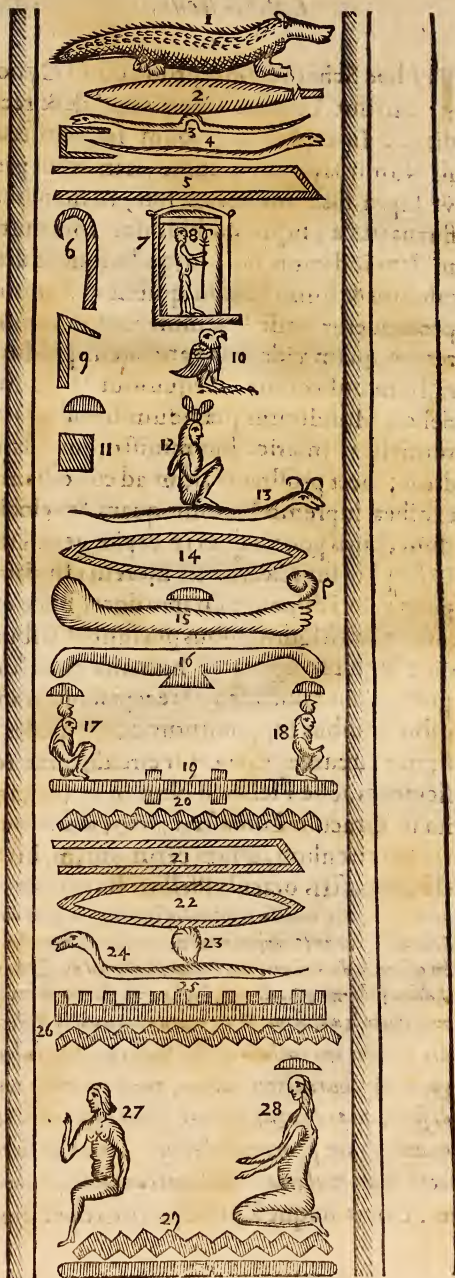 1
2
3
4
5
6 7 8
9 10
11 12
13
14
15
16
17 18
19
20
21
22
24 23
25
26
27 28
29